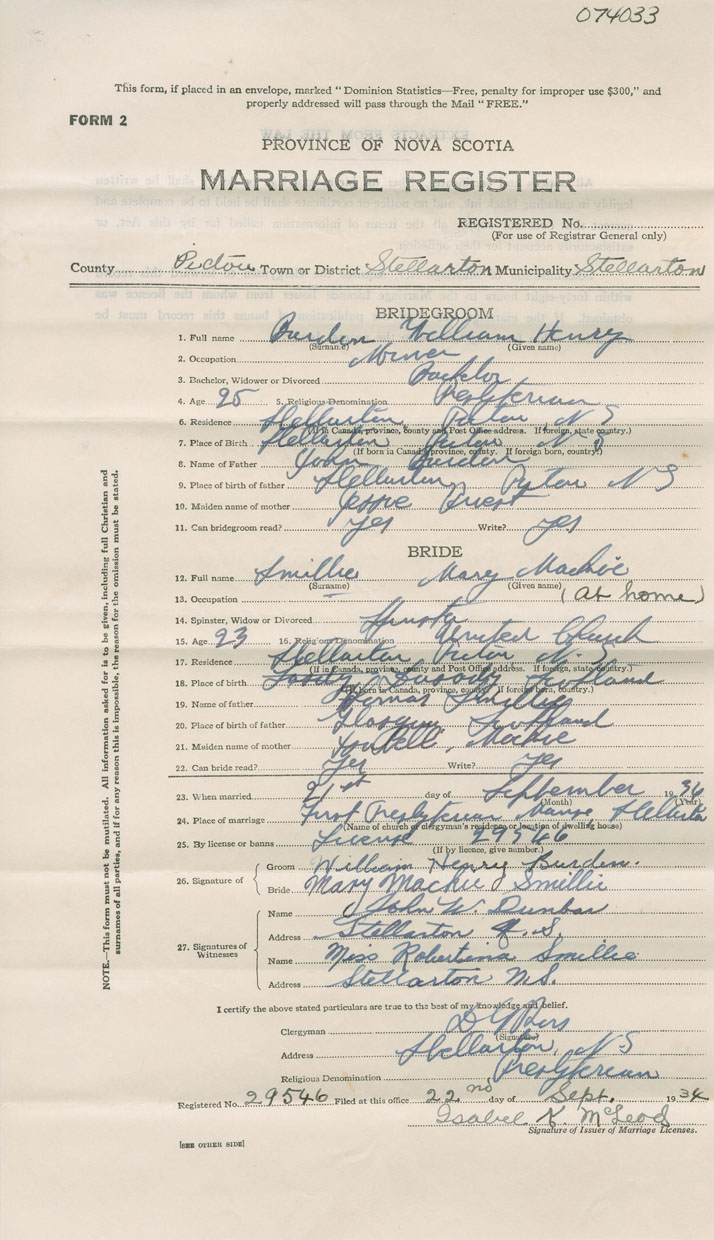 074033
This form, if placed in an envelope, marked "Dominion Statistics—Free, penalty for improper use $300," and
properly addressed will pass through the Mail "FREE."
FORM 2
PROVINCE OF NOVA SCOTIA
MARRIAGE REGISTER
REGISTERED No.
(For use of Registrar General only)
County Pictou Town or District Stellarton Municipality Stellarton
BRIDEGROOM
1. Full name Burden William Henry
(Surname) (Given name)
2. Occupation Miner
3. Bachelor, Widower or Divorced Bachelor
4. Age 25 5. Religious Denomination Presbyterian
6. Residence Stellarton Pictou N S
(If in Canada, province, county and Post Office address. If foreign, state country.)
7. Place of Birth Stellarton Pictou N S
(If born in Canada, province, county. If foreign born, country.)
8. Name of Father John Burden
9. Place of birth of father Stellarton Pictou N S
10. Maiden name of mother Jessie
11. Can bridegroom read? Yes Write? Yes
BRIDE
12. Full name Smillie Mary Mackie
(Surname) (Given name)
13. Occupation (At home)
14. Spinster, Widow or Divorced Spinster
15. Age 23 16. Religious Denomination United Church
17. Residence Stellarton Pictou N. S
(If in Canada, province, county and Post Office address. If foreign, state country.)
18. Place of birth Scotland
(If born in Canada, province, county. If foreign born, country.)
19. Name of father Thomas Smillie
20. Place of birth of father Glasgow Scotland
21. Maiden name of mother Mackie
22. Can bride read? Yes Write? Yes
23. When married 21st day of September 1934
(Month) (Year)
24. Place of marriage First Presbyterian Manse, Stellarton
(Name of church or clergyman's residence or location of dwelling house)
25. By license or banns License 29546
(If by licence, give number.)
26. Signature of Groom William Henry Burden.
Bride Mary Mackie Smillie
27. Signatures of Witnesses Name John W. Dunbar
Address Stellarton N. S.
Name Miss Robertina Smillie
Address Stellarton N.S.
I certify the above stated particulars are true to the best of my knowledge and belief.
Clergyman D G Ross
(Signature)
Address Stellarton, N S
Religious Denomination Presbyterian
Registered No. 29546 Filed at this office 22nd day of Sept. 1934
Isabel K. McLeod
Signature of Issuer of Marriage Licenses.
[SEE OTHER SIDE]
NOTE.—This form must not be mutilated. All information asked for is to be given, including full Christian and
surnames of all parties, and if for any reason this is impossible, the reason for the omission must be stated.